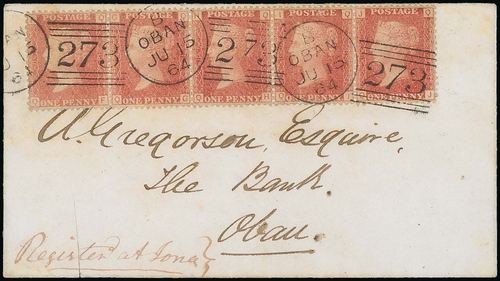 OBAN JU 15 64 273 B OBAN JU 15 64 273 B OBAN JU 15 64 273
ONE PENNY ONE PENNY ONE PENNY ONE PENNY ONE PENNY
A. Gregorson, Esquire,
The Bank,
Oban.
Register at Iona